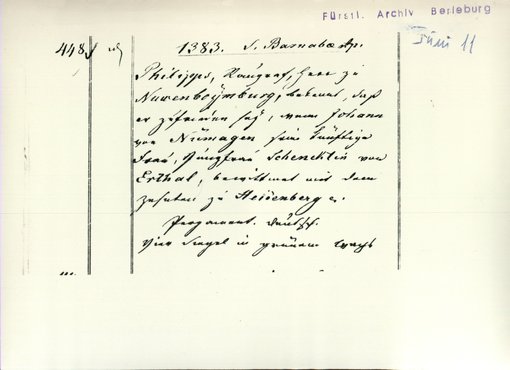 Fürstl. Archiv Berleburg
Juni 11
448
1383. S. Barnabae Ap.
Philipps, Raugraf, Herr zu
Nuwenbeymburg, bekennt, daß
er zufrieden sey, wenn Johann
von Nümagen seine künftige
Frau, Jungfrau Schencklin von
Erthal, bewittmet mit dem
zehnten zu Heidenberg
Pergament. deutsch.
Vier Siegel in grünem Wachs